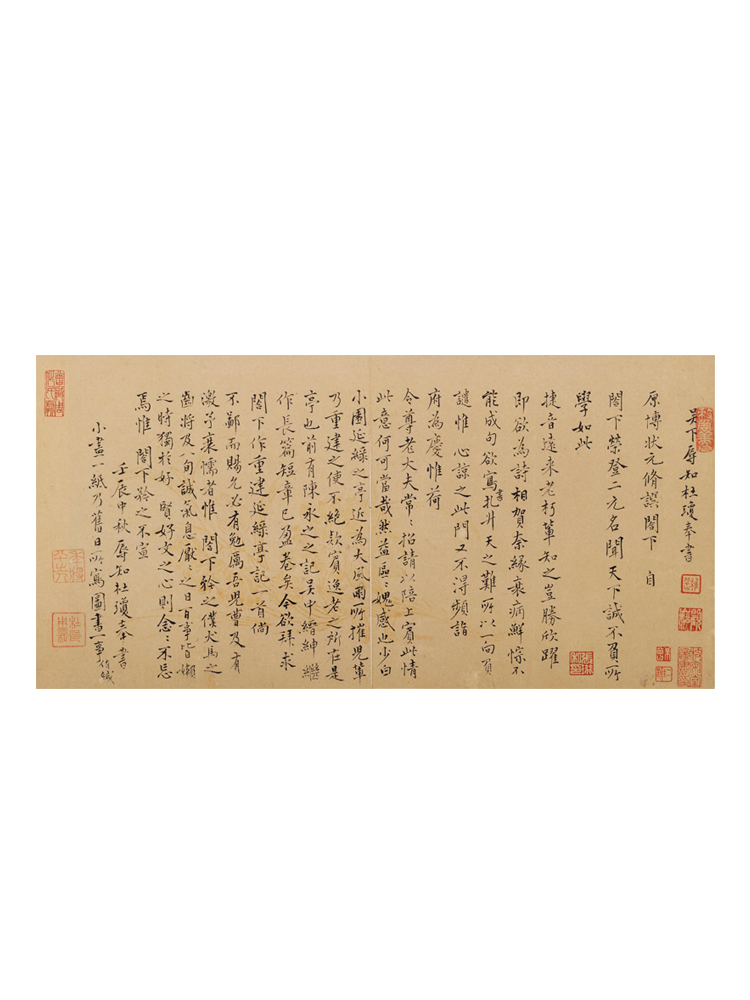 吳下辱知杜瓊奉書
原博狀元脩譔閣下 自
閣下榮登二元名聞天下誠不負所
學如此
捷音遠來老朽輩知之豈勝欣躍
即欲為詩相賀奈緣衰病鮮悰不
能成句欲寫書扎升天之難所以一向負
譴惟 心諒之此門又不得頻詣
府為慶惟荷
令尊老大夫常〻招請以陪上賓此情
此意何可當哉無益區〻媿感也少白
小圃延綠之亭近為大風雨所摧兒輩
乃重建之使不絕欵賓逸老之所在是
亭也前有陳永之之記吳中縉紳繼
作長篇短章已盈卷矣今欲拜求
閣下作重建延綠亭記一首倘
不鄙而賜允必有勉厲吾兒曹及有
激予衰懦者惟 閣下矜之僕犬馬之
齒將及八旬誠氣息厭〻之日百事皆嬾
之時獨於好 賢好文之心則念〻不忘
焉惟 閣下矜之不宣
壬辰中秋辱知杜瓊奉書
小畫一紙乃舊日所寫圖書一事